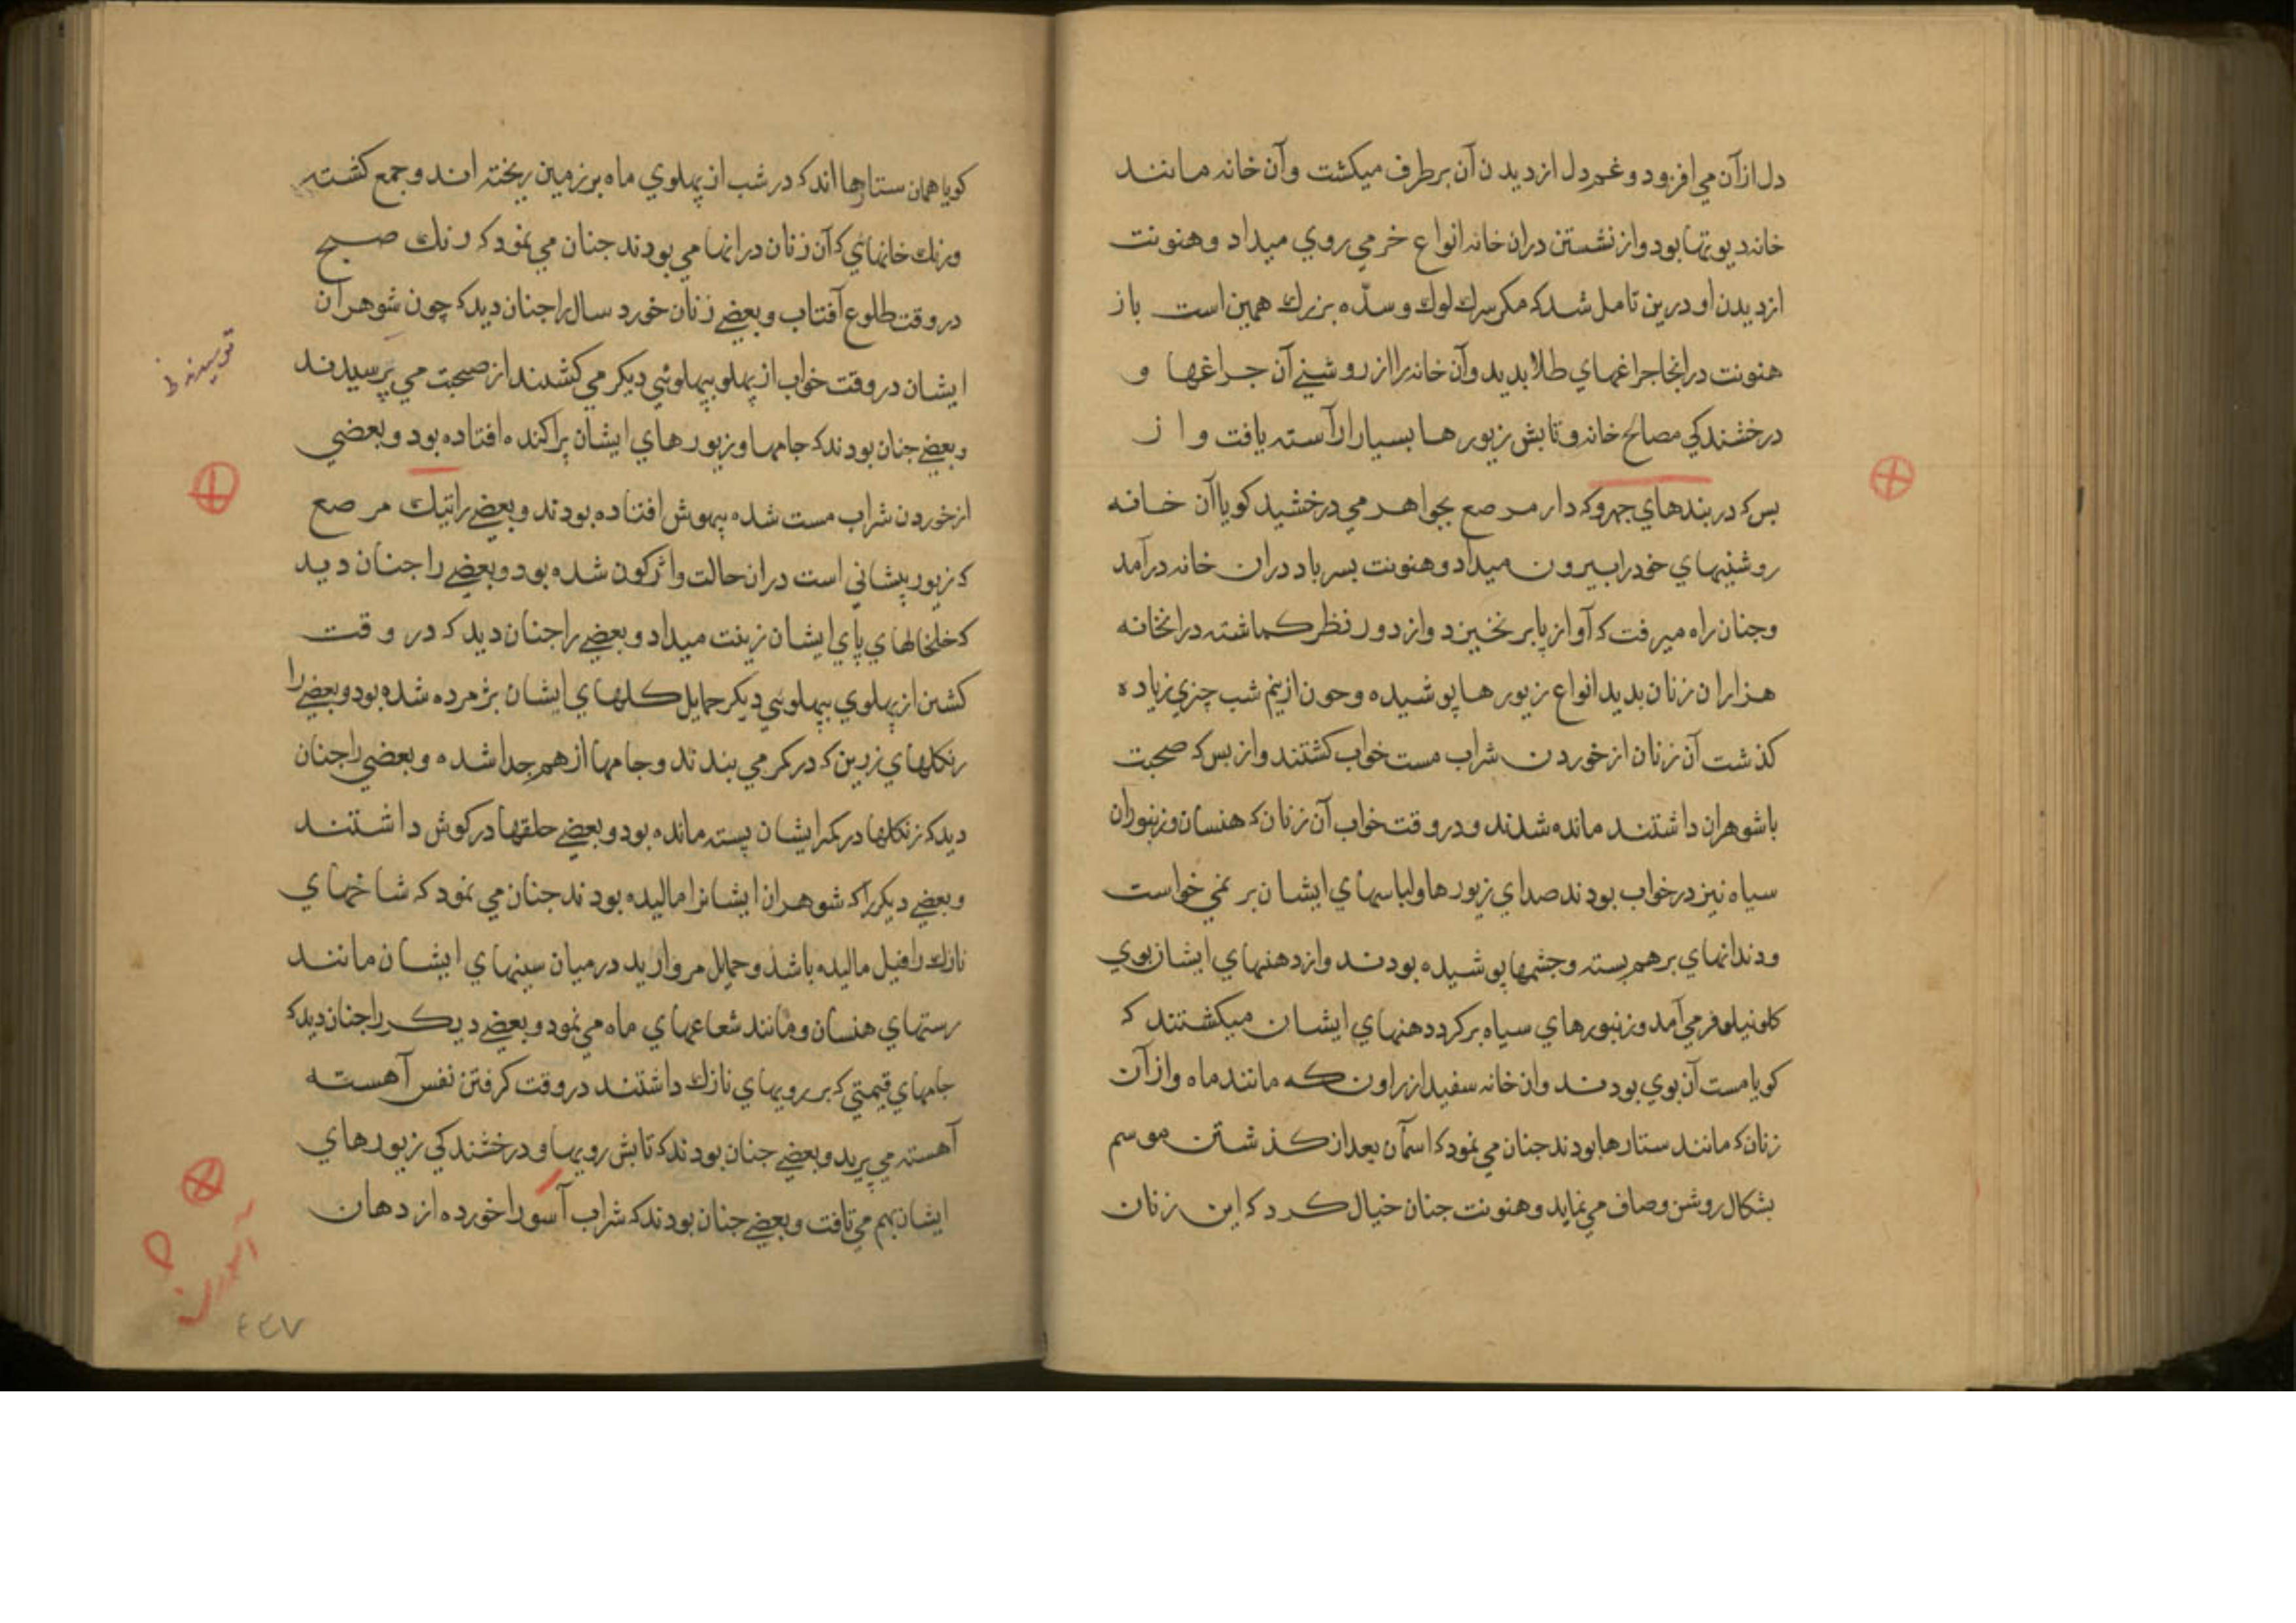 دل ازآن مي افزود و غم دل ازديدن آن برطرف ميكشت وآن خانه مانند
خانه ديوتها بود واز نشستن دران خانه انواع خرمي روي ميداد وهنونت
ازديدن او درين تامل شد كه مكر سرك لوك وسدّه بزرك همين است باز
هنونت درانجا چراغهاي طلا بديد وآن خانه را از روشني آن چراغها و
درخشندكي مصالح خانه وتابش زيورها بسيار آراسته يافت واز
بس كه دربندهاي جهروكه دار مرصع بجواهر مي درخشيد كويا آن خانه
روشنيهاي خودرا بيرون ميداد وهنونت پسر باد دران خانه درآمد
وجنان راه ميرفت كه آواز پا بر نخيزد واز دور نظر كماشته درانخانه
هزاران زنان بديد انواع زيورها پوشيده وچون از نيم شب چيزي زياده
كذشت آن زنان از خوردن شراب مست خواب كشتند واز بس كه صحبت
باشوهران داشتند مانده شدند ودر وقت خواب آن زنان كه هنسان وزنبوران
سياه نيز درخواب بودند صداي زيورها ولباسهاي ايشان بر نمي خواست
ودندانهاي برهم بسته وچشمها پوشيده بودند واز دهنهاي ايشان بوي
كل نيلوفر مي آمد وزنبورهاي سياه بركرد دهنهاي ايشان ميكشتند كه
كويا مست آن بوي بودند وان خانه سفيد از راون كه مانند ماه وازآن
زنان كه مانند ستارها بودند جنان مي نمود كه آسمان بعد از كذشتن موسم
بشكال روشن وصاف مي نمايد وهنونت جنان خيال كرد كه اين زنان
كويا همان ستارها اند كه در شب از پهلوي ماه بر زمين ريخته اند وجمع كشته
ورنك خانهائي كه آن زنان درانها مي بودند جنان مي نمود كه رنك صبح
دروقت طلوع آفتاب وبعضي زنان خورد سال را جنان ديد كه چون شوهران
ايشان دروقت خواب از پهلو بپهلوئي ديكر مي كشند از صحبت مي پرسيدند
وبعضي جنان بودند كه جامها وزيورهاي ايشان پراكنده افتاده بود وبعضي
ازخوردن شراب مست شده بيهوش افتاده بودند وبعضي را تيك مرصع
كه زيور پيشاني است دران حالت واژكون شده بود وبعضي را جنان ديد
كه خلخالهاي پاي ايشان زينت ميداد وبعضي را جنان ديد كه در وقت
كشتن از پهلوي بپهلوئي ديكر حمايل كلهاي ايشان پژمرده شده بود وبعضي را
زنكلهاي زرين كه در كمر مي بندند وجامها از هم جدا شده وبعضي را جنان
ديد كه زنكلها در كمر ايشان بسته مانده بود وبعضي حلقها در كوش داشتند
وبعضي ديكر را كه شوهران ايشانرا ماليده بودند جنان مي نمود كه شاخهاي
نازك را فيل ماليده باشد وحمايل مرواريد درميان سينهاي ايشان مانند
رستهاي هنسان ومانند شعاعهاي ماه مي نمود وبعضي ديكر را جنان ديد كه
جامهاي قيمتي كه بر رويهاي نازك داشتند در وقت كرفتن نفس آهسته
آهسته مي پريد وبعضي جنان بودند كه تابش رويها ودرخشندكي زيورهاي
ايشان بهم مي تافت وبعضي جنان بودند كه شراب آسورا خورده از دهان
۴۴۷